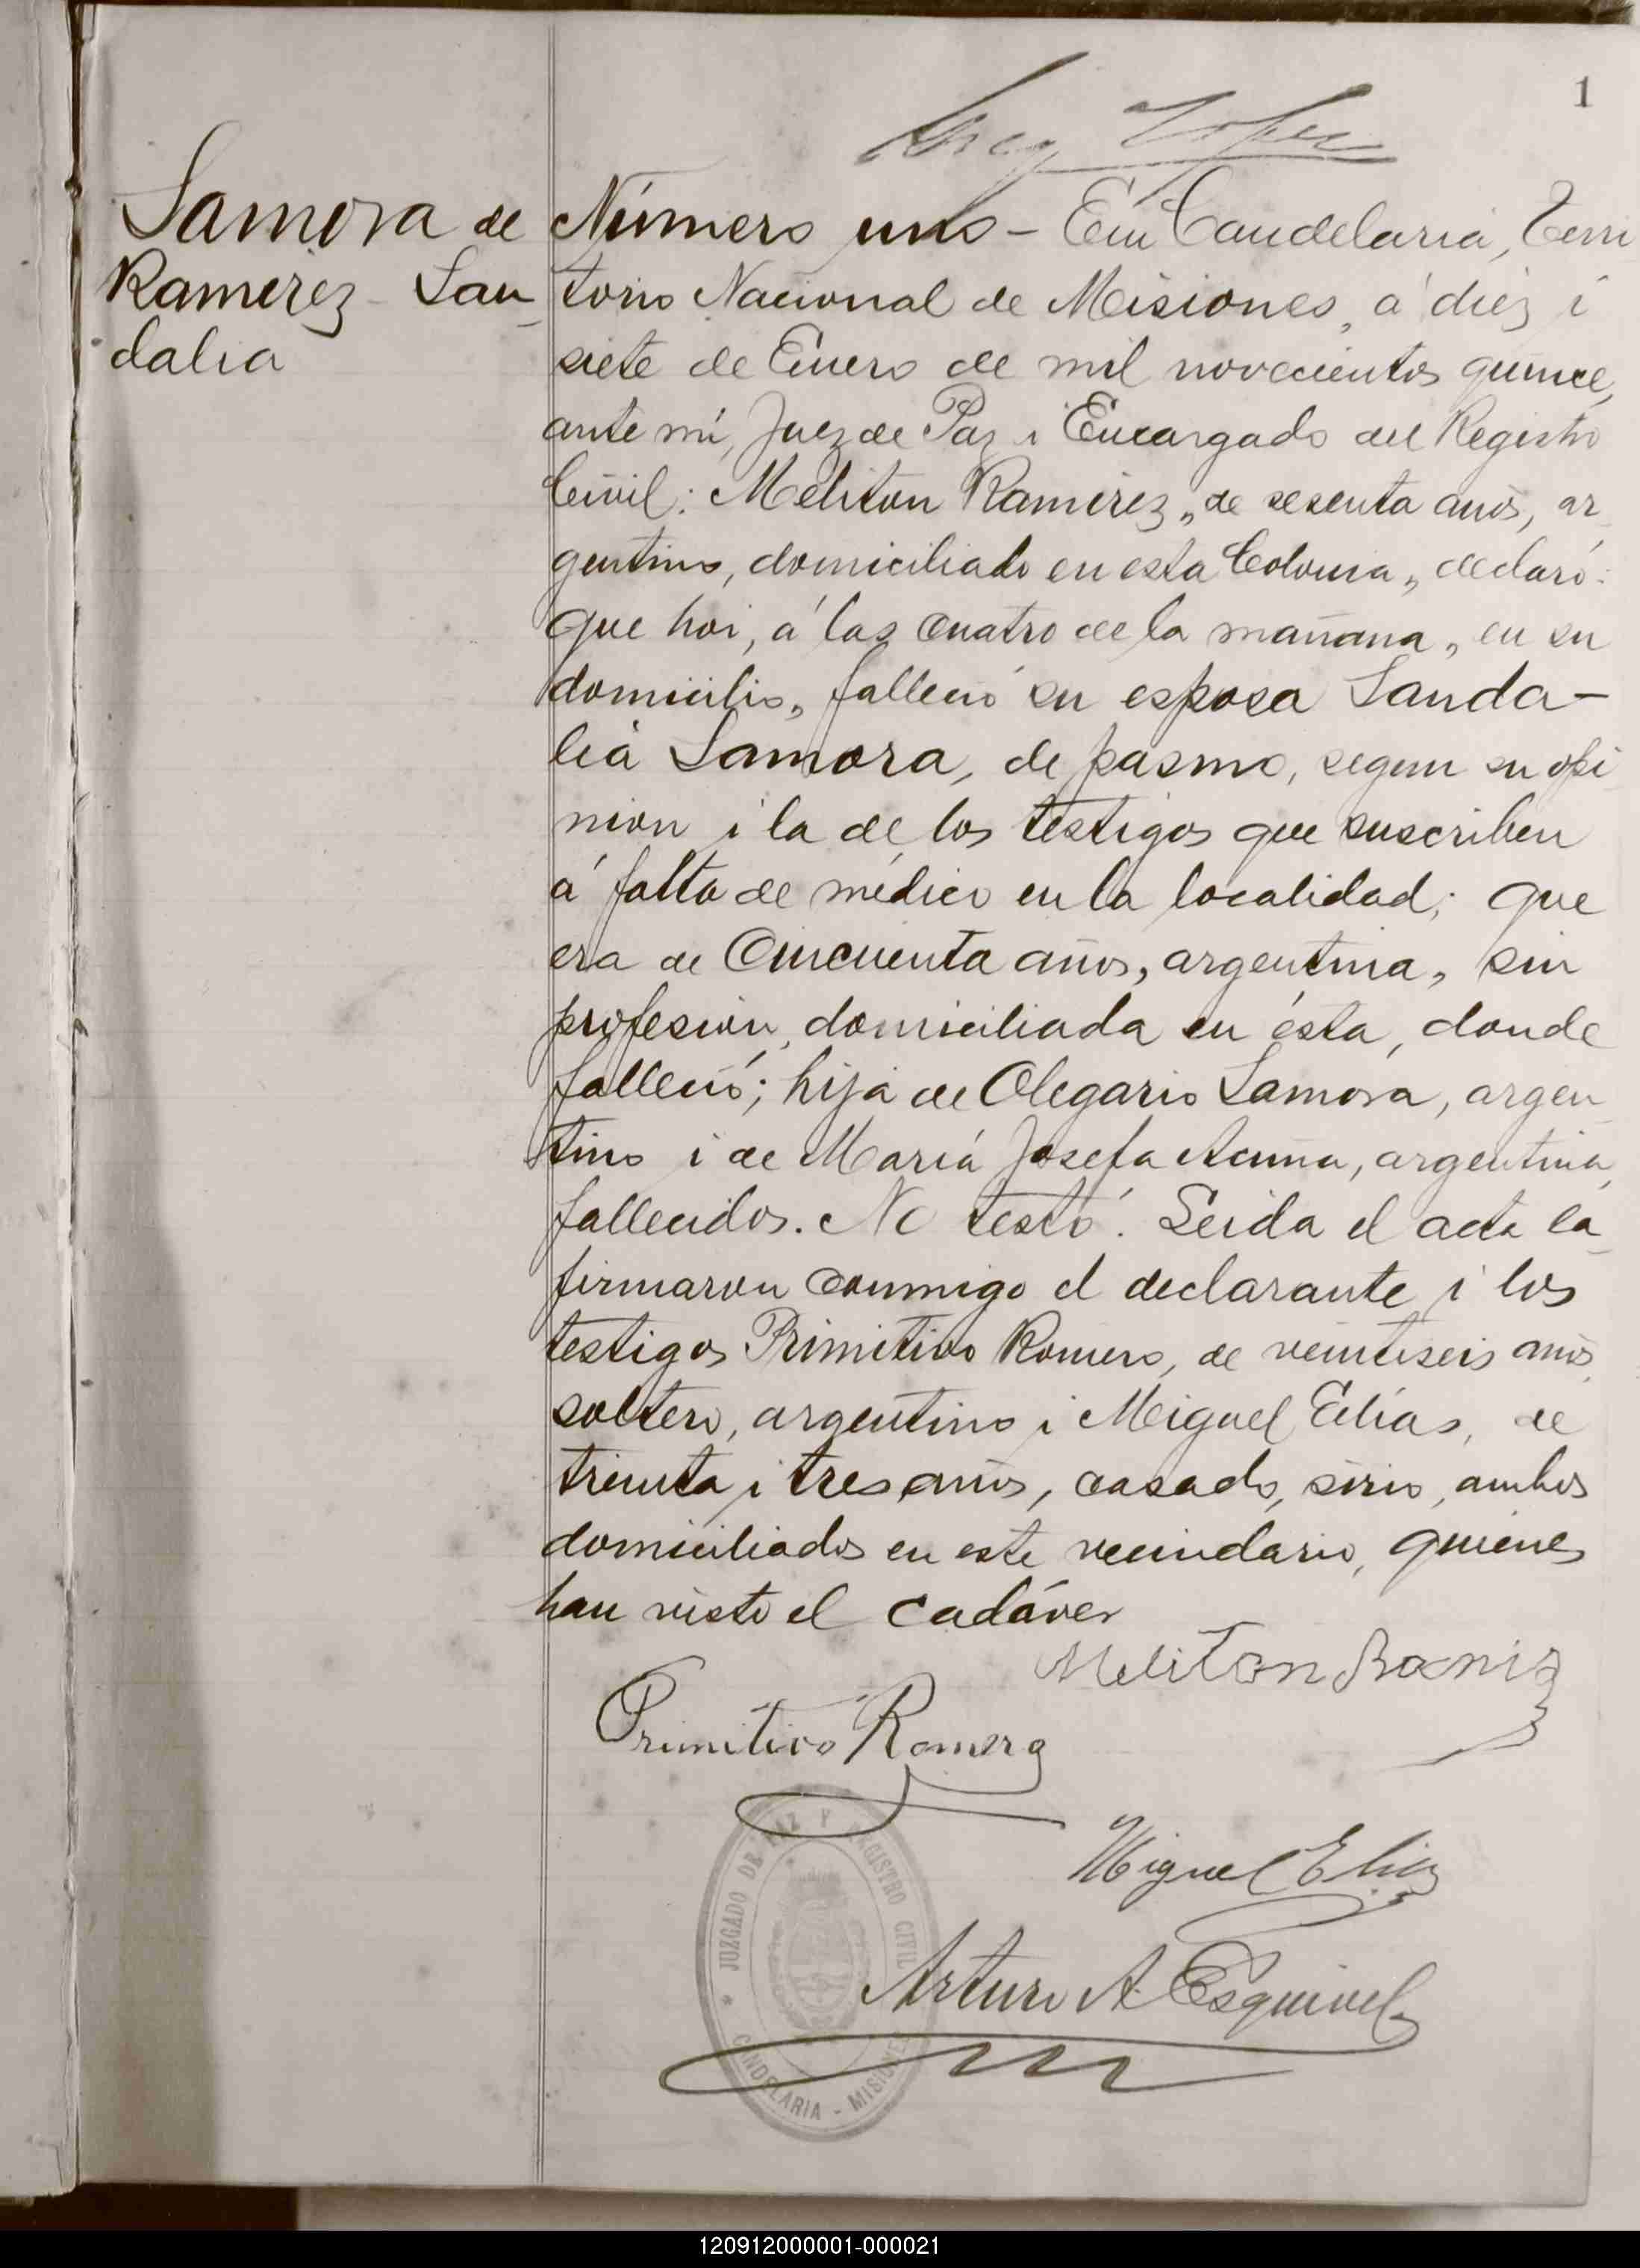 1
Samora de
Ramirez San
dalia
Número uno - En Candelaria, Terri
torio Nacional de Misiones, á diez i
siete de Enero de mil novecientos quince,
ante mí, Juez de Paz i Encargado del Registro
Civil: Meliton Ramirez, de sesenta años, ar
gentino, domiciliado en esta Colonia, declaró:
Que hoi, á las cuatro de la mañana, en su
domicilio, falleció su esposa Sanda-
lia Samora, de pasmo, segun su opi
nion i la de los testigos que suscriben
á falta de médico en la localidad; que
era de Cincuenta años, argentina, sin
profesión, domiciliada en ésta, donde
falleció; hija de Olegario Samora, argen
tino i de María Josefa Acuña, argentina,
fallecidos. No testó. Leida el acta la
firmaron conmigo el declarante i los
testigos Primitivo Romero, de veintiseis años,
soltero, argentino i Miguel Elías, de
treinta i tres años, casado, sirio, ambos
domiciliados en este vecindario, quienes
han visto el cadáver
Meliton Ramirz
Primitivo Romero
Miguel Elias
Arturo A Esquivel
JUZGADO DE PAZ Y REGISTRO CIVIL
CANDELARIA - MISIONES
120912000001-000021